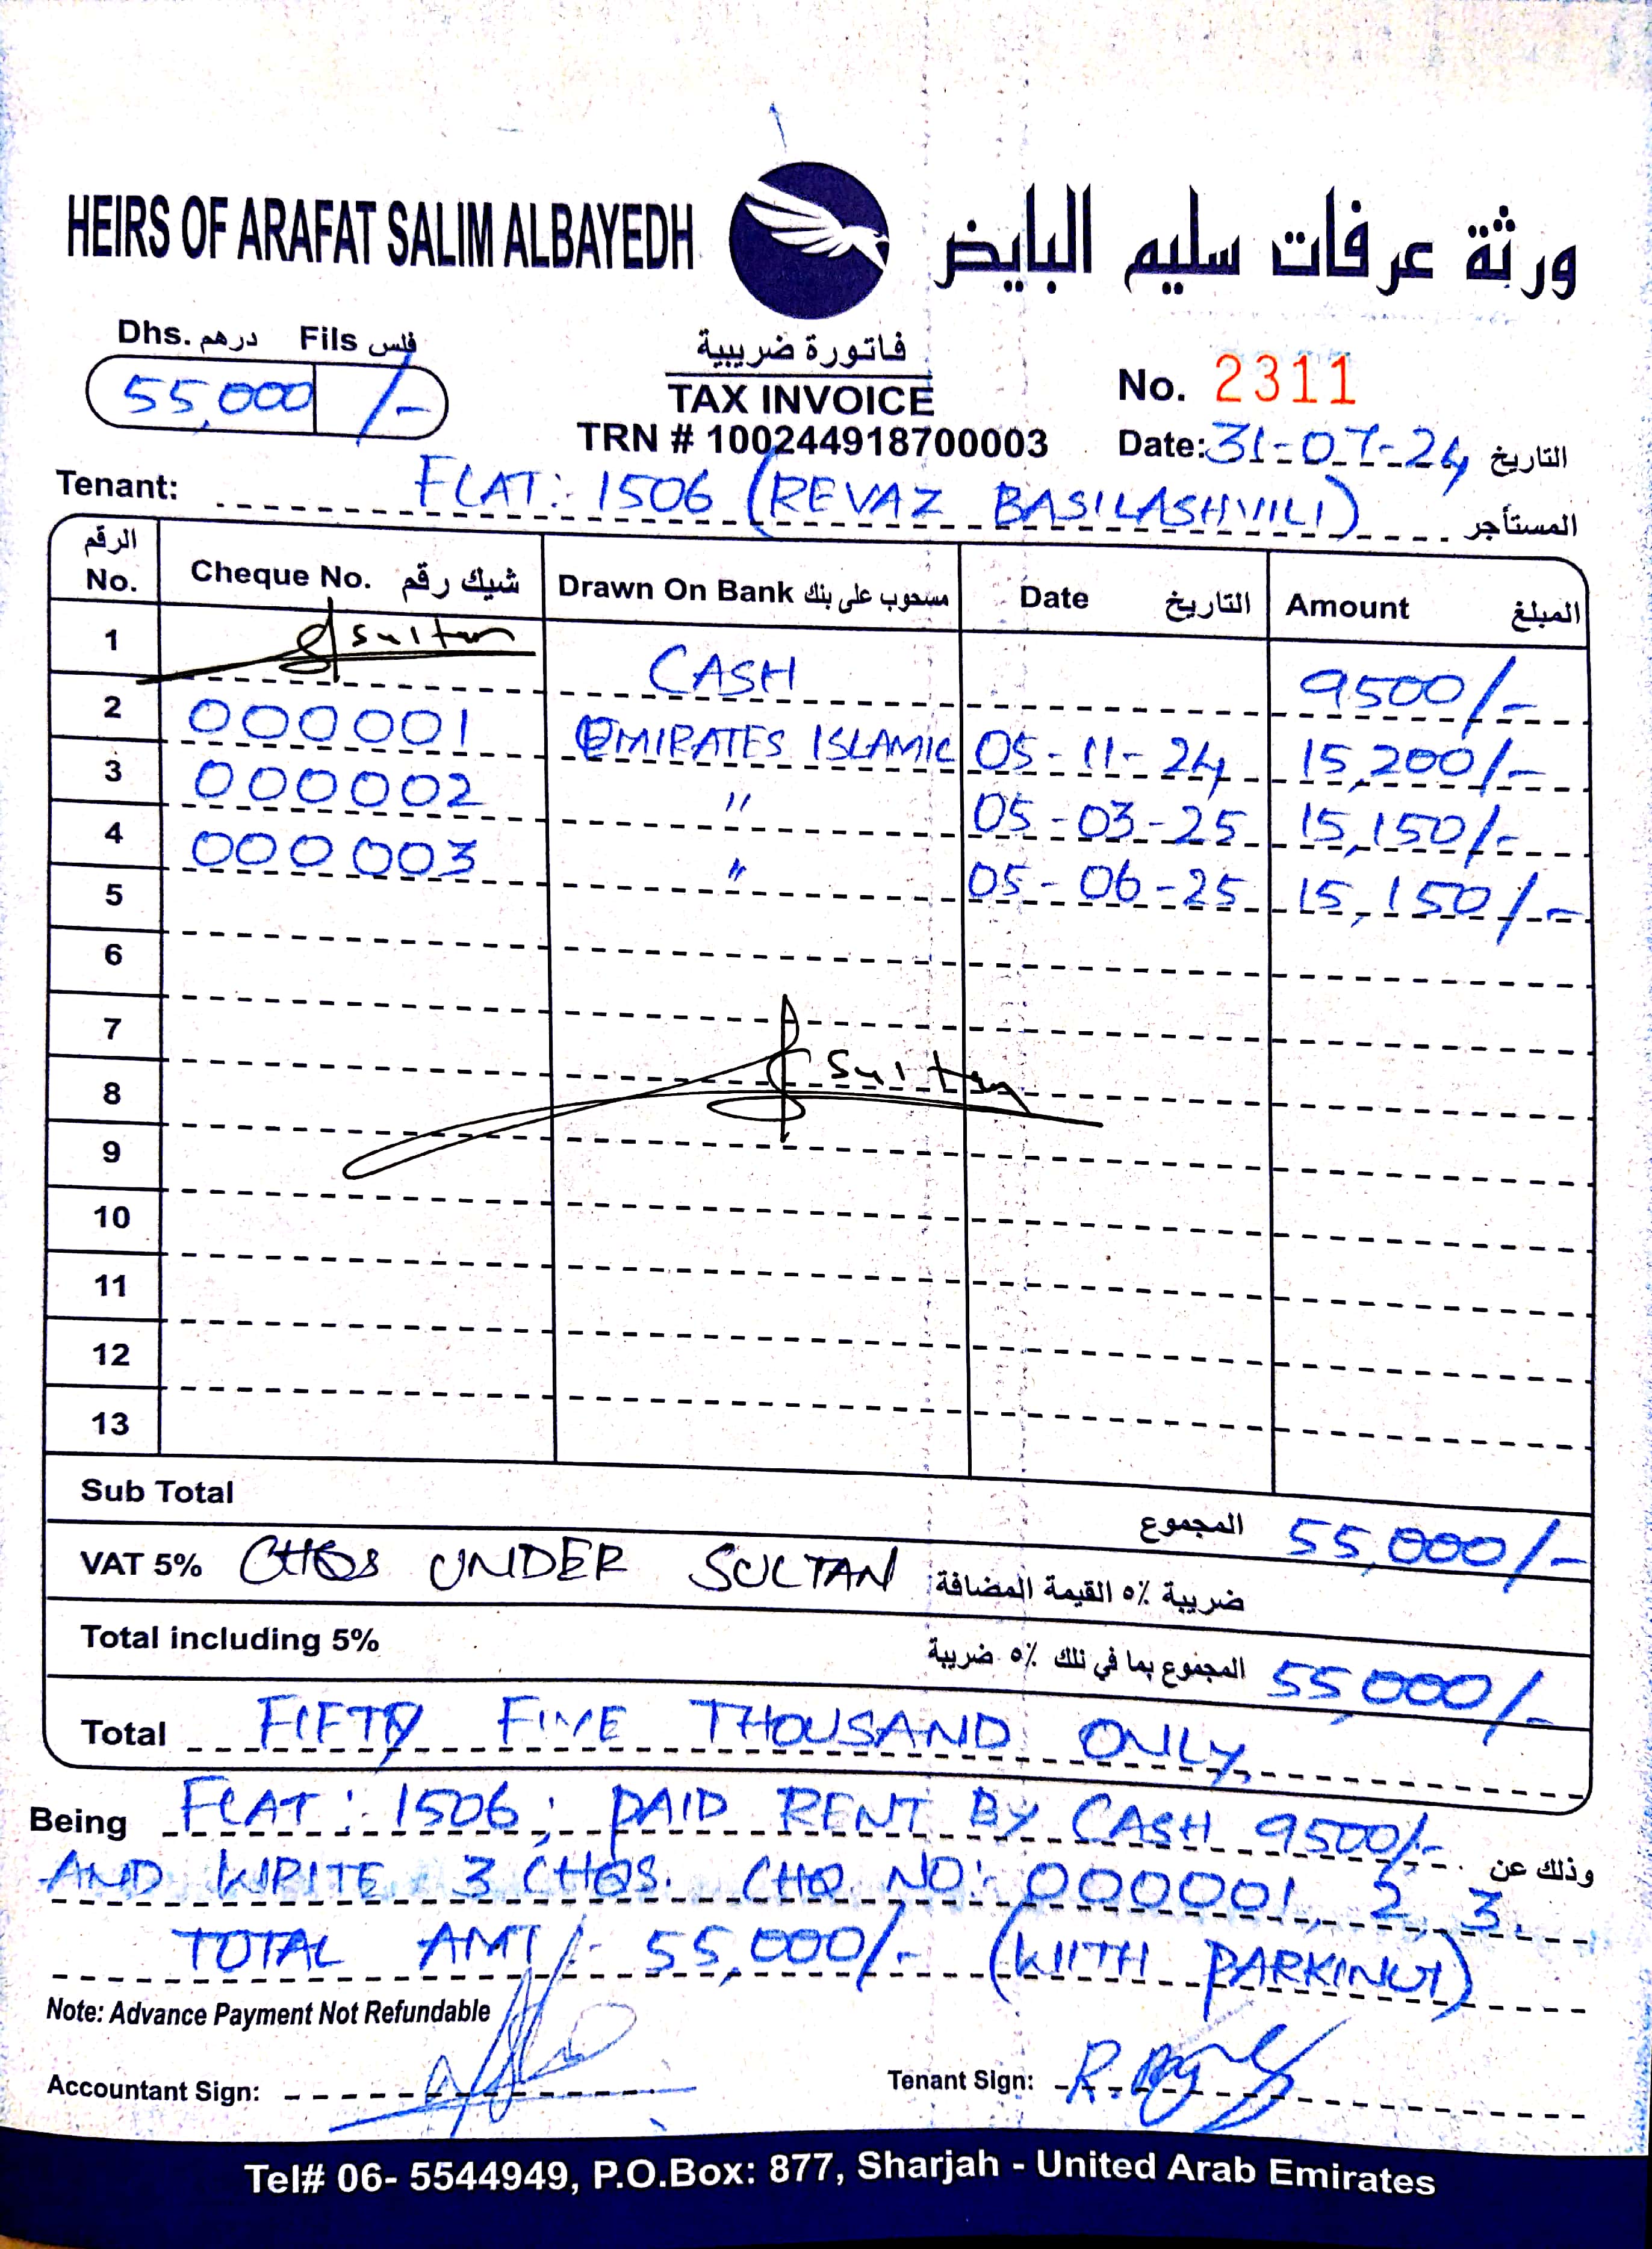 HEIRS OF ARAFAT SALIM ALBAYEDH ورثة عرفات سليم البايض
Dhs. درهم Fils فلس
55,000 /-
فاتورة ضريبية
TAX INVOICE
TRN # 100244918700003
No. 2311
Date: 31-07-24 التاريخ
Tenant: FLAT:- 1506 (REVAZ BASILASHVILI) المستأجر
الرقم No. Cheque No. شيك رقم Drawn On Bank مسحوب على بنك Date التاريخ Amount المبلغ
1 Sultan CASH 9500/-
2 000001 EMIRATES ISLAMIC 05-11-24 15,200/-
3 000002 " 05-03-25 15,150/-
4 000003 " 05-06-25 15,150/-
5
6
7
Sultan
8
9
10
11
12
13
Sub Total المجموع 55,000/-
VAT 5% CHQS UNDER SULTAN ضريبة ٥٪ القيمة المضافة
Total including 5% المجموع بما في ذلك ٥٪ ضريبة 55,000/-
Total FIFTY FIVE THOUSAND ONLY,
Being FLAT:- 1506; PAID RENT BY CASH 9500/- وذلك عن
AND WRITE 3 CHQS. CHQ NO:- 000001, 2, 3.
TOTAL AMT/- 55,000/- (WITH PARKING)
Note: Advance Payment Not Refundable
Accountant Sign:
Tenant Sign:
Tel# 06- 5544949, P.O.Box: 877, Sharjah - United Arab Emirates